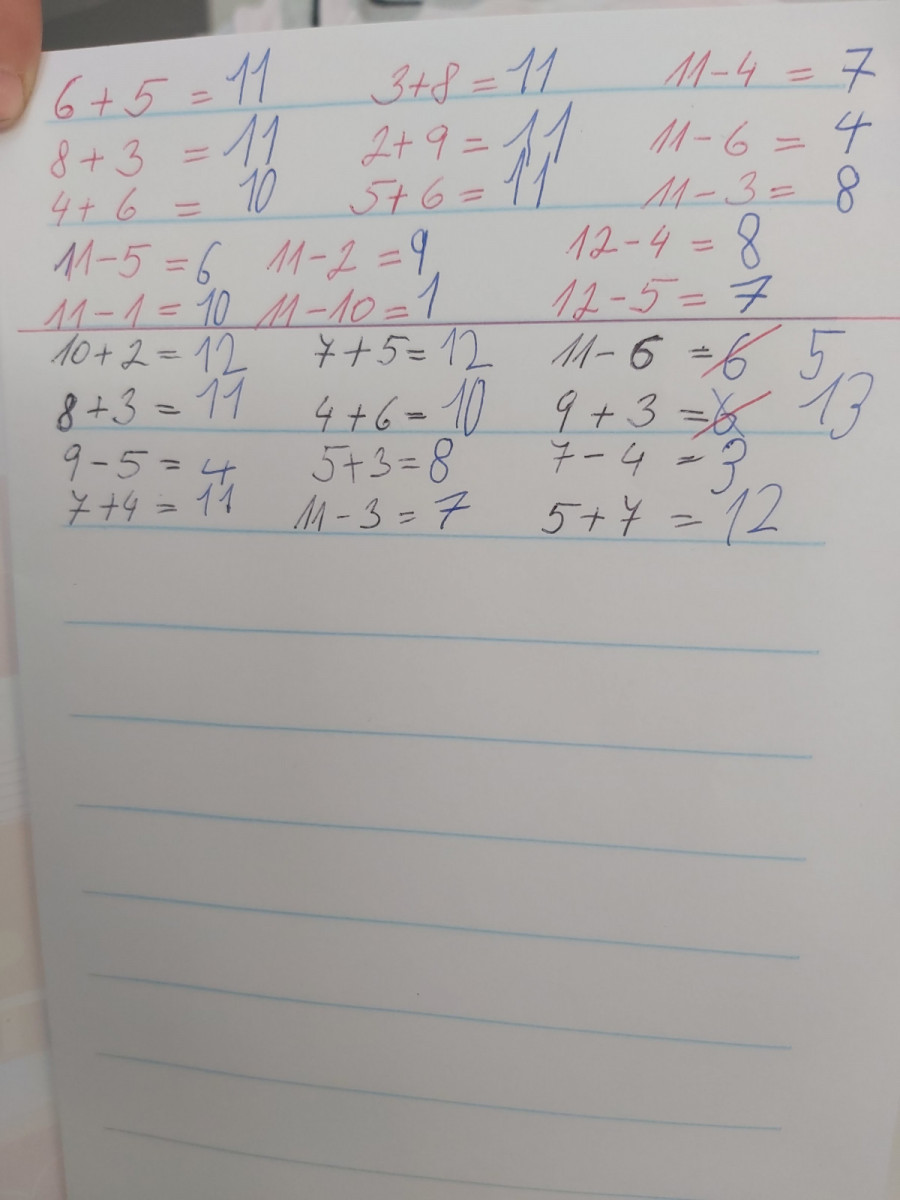 6 + 5 = 11 3+8 = 11 11-4 = 7
8 + 3 = 11 2+9 = 11 11-6 = 4
4+ 6 = 10 5+6 = 11 11-3 = 8
11-5 = 6 11-2 = 9 12-4 = 8
11-1 = 10 11-10 = 1 12-5 = 7
10+2 = 12 7+5 = 12 11-6 = 6 5
8+3 = 11 4+6 = 10 9+3 = 8 13
9-5 = 4 5+3 = 8 7-4 = 3
7+4 = 11 11-3 = 7 5+7 = 12